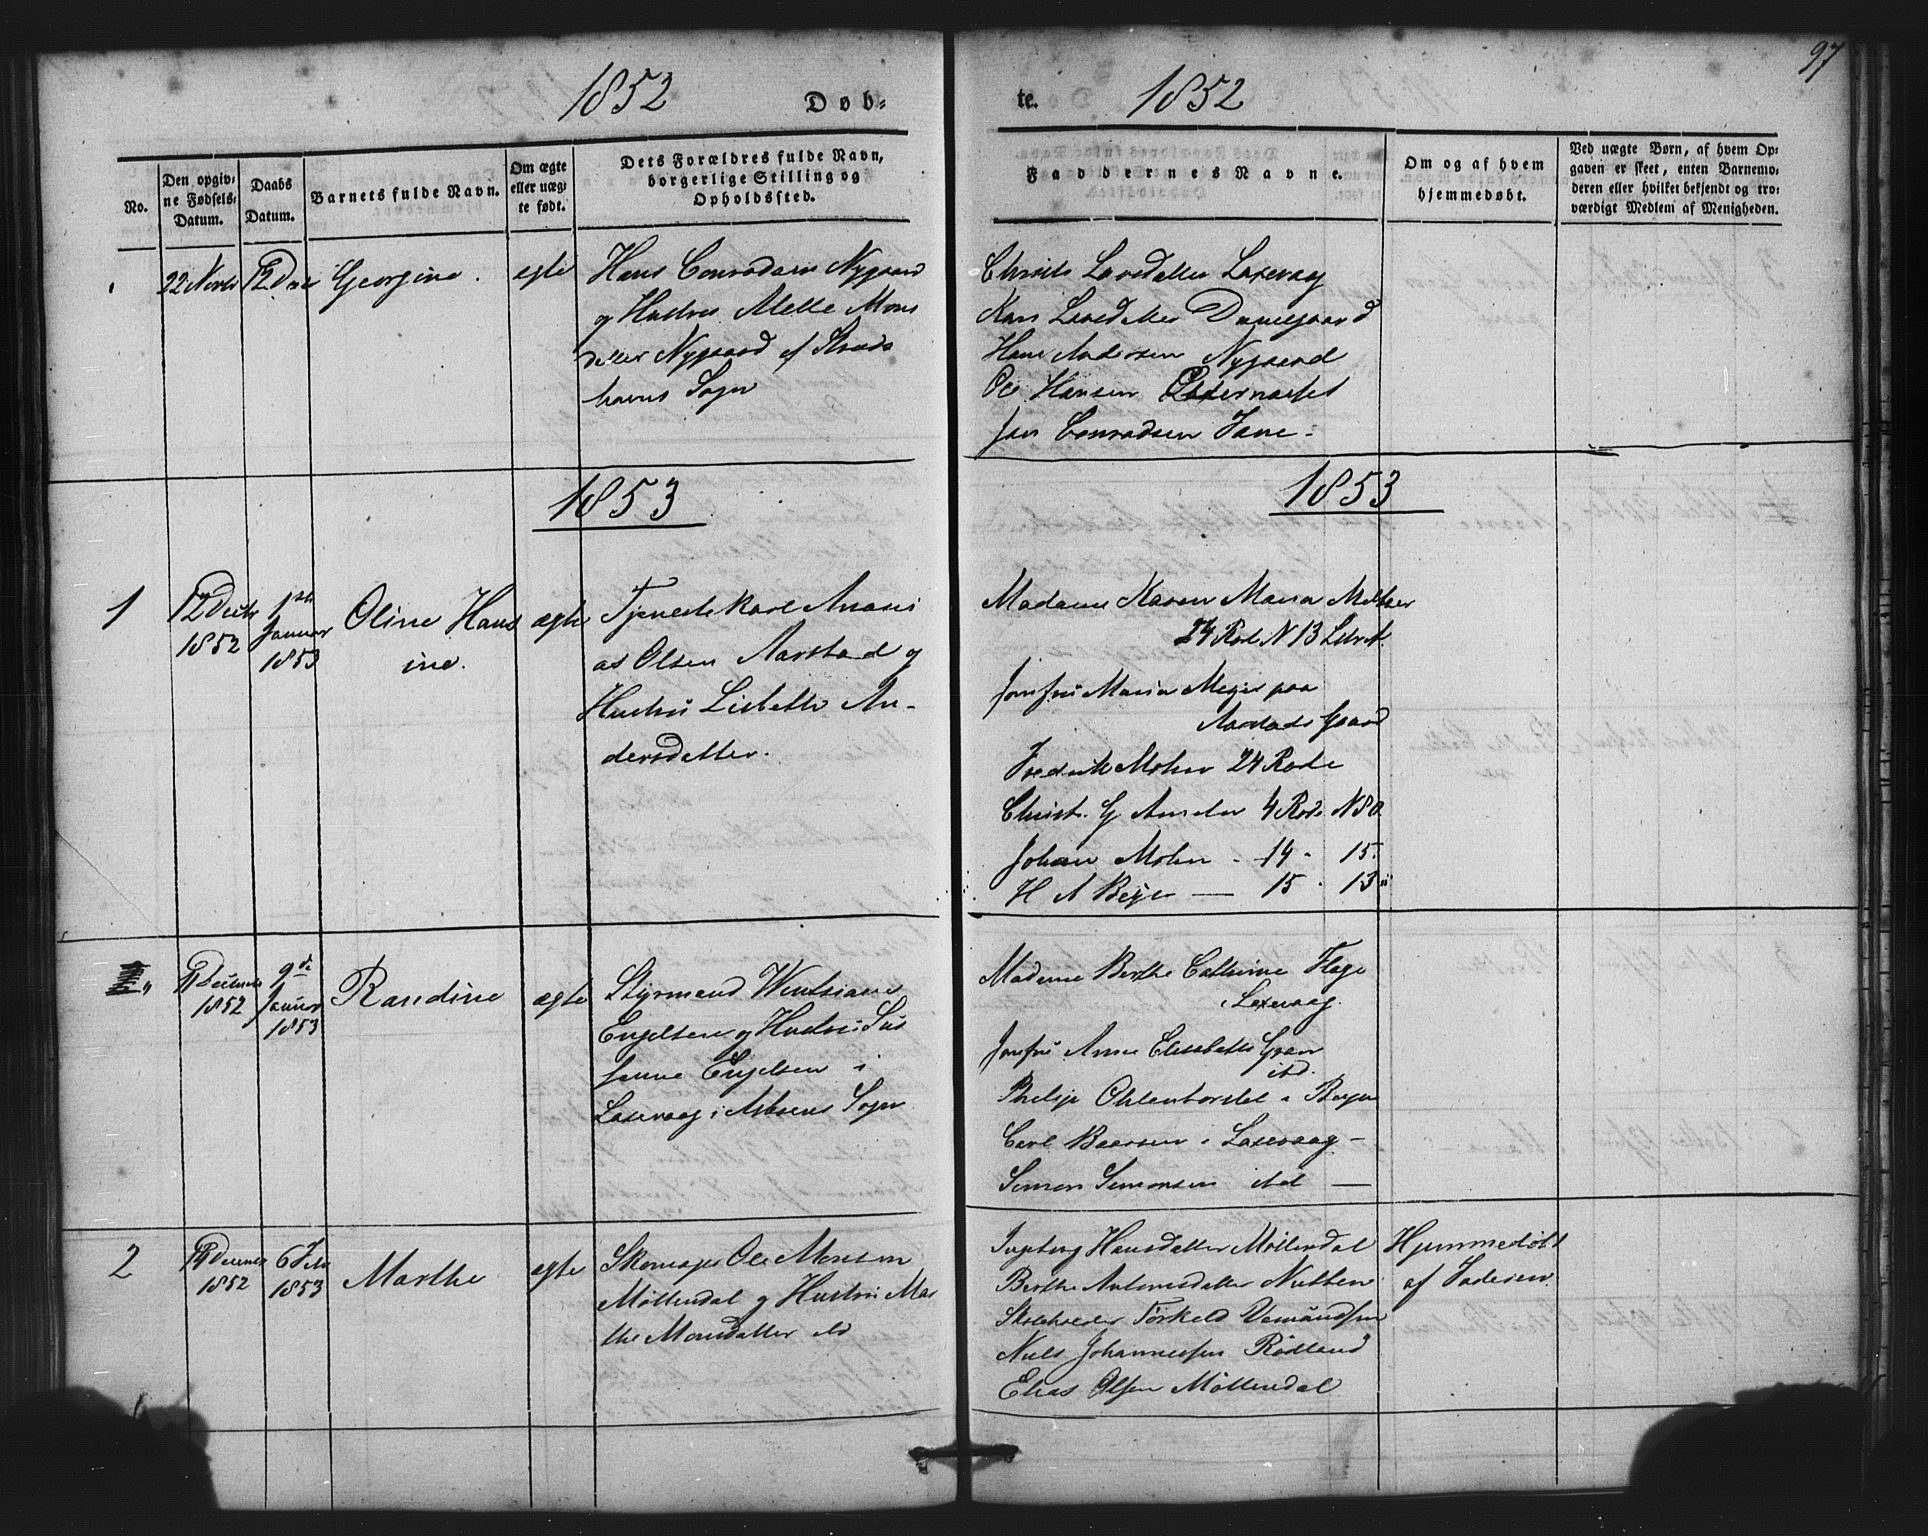 97
1852
Døb-
te.
1852
No.
Den opgiv-
ne Fødsels-
Datum.
Daabs
Datum.
Barnets fulde Navn.
Om ægte
eller uæg-
te født.
Dets Forældres fulde Navn,
borgerlige Stilling og
Opholdssted.
Faddernes Navne.
Om og af hvem
hjemmedøbt.
Ved uægte Børn, af hvem Op-
gaven er skeet, enten Barnemo-
deren eller hvilket bekjendt og tro-
værdigt Medlem af Menigheden.
22 Novbr
Georgine.
ægte
Hans Conradsen Nygaard
og Hustru Mette Mons
datter Nygaard af
havns Sogn
Larsdatter Laxevaag
Kari Larsdatter Damsgaard
Hans Andersen Nygaard
Ole Hansen
Conradsen
1853
1853
1
12 Decbr
1852
1ste
Januar
1853
Oline Hans
ine.
ægte
Tjenestekarl Anani
as Olsen Aarstad og
Hustru Lisbeth An-
dersdatter.
Madame Karen Maria Meltzer
24 Rode N 13
Jomfru Maria Meyer paa
Aarstads Gaard
Fredrik Mohn 24 Rode
Christ. G 4 Rode N 80.
Johan Mohn - 14 - 15.
H A Beyer — 15 - 13
"
1852
9de
Januar
1853
Randine
ægte
Styrmand
Engelsen og Hustru Su
sanne Engelsen i
Laxevaag i Askøens Sogn
Madame Berthe Cathrine
i Laxevaag.
Jomfru Anne Elisabeth Gran
ibd.
Philip Ohlenborstel i Bergen
Carl Baarsen i Laxevaag —
Simon Simonsen ibd —
2
1852
6 Febr
1853
Marthe
ægte
Skomager Ole Monsen
Møllendal og Hustru Mar
the Monsdatter ibd
Ingeborg Hansdatter Møllendal
Berthe Antonisdatter
Skoleholder Torkeld
Niels Johannessen Rødland
Elias Olsen Møllendal
Hjemmedøbt
af Faderen.